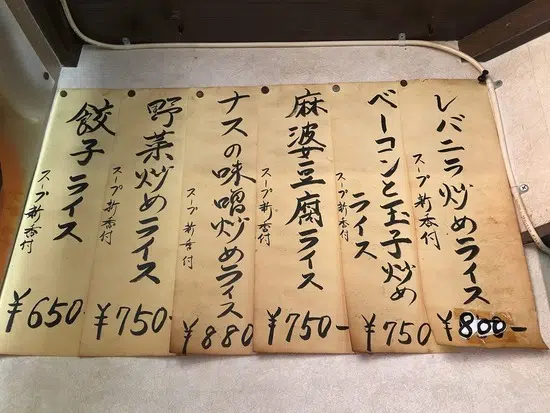 レバニラ炒めライス
スープ新香付
￥800-
ベーコンと玉子炒め
ライス
スープ新香付
￥750
麻婆豆腐ライス
スープ新香付
￥750-
ナスの味噌炒めライス
スープ新香付
￥880
野菜炒めライス
スープ新香付
￥750-
餃子ライス
スープ新香付
￥650-